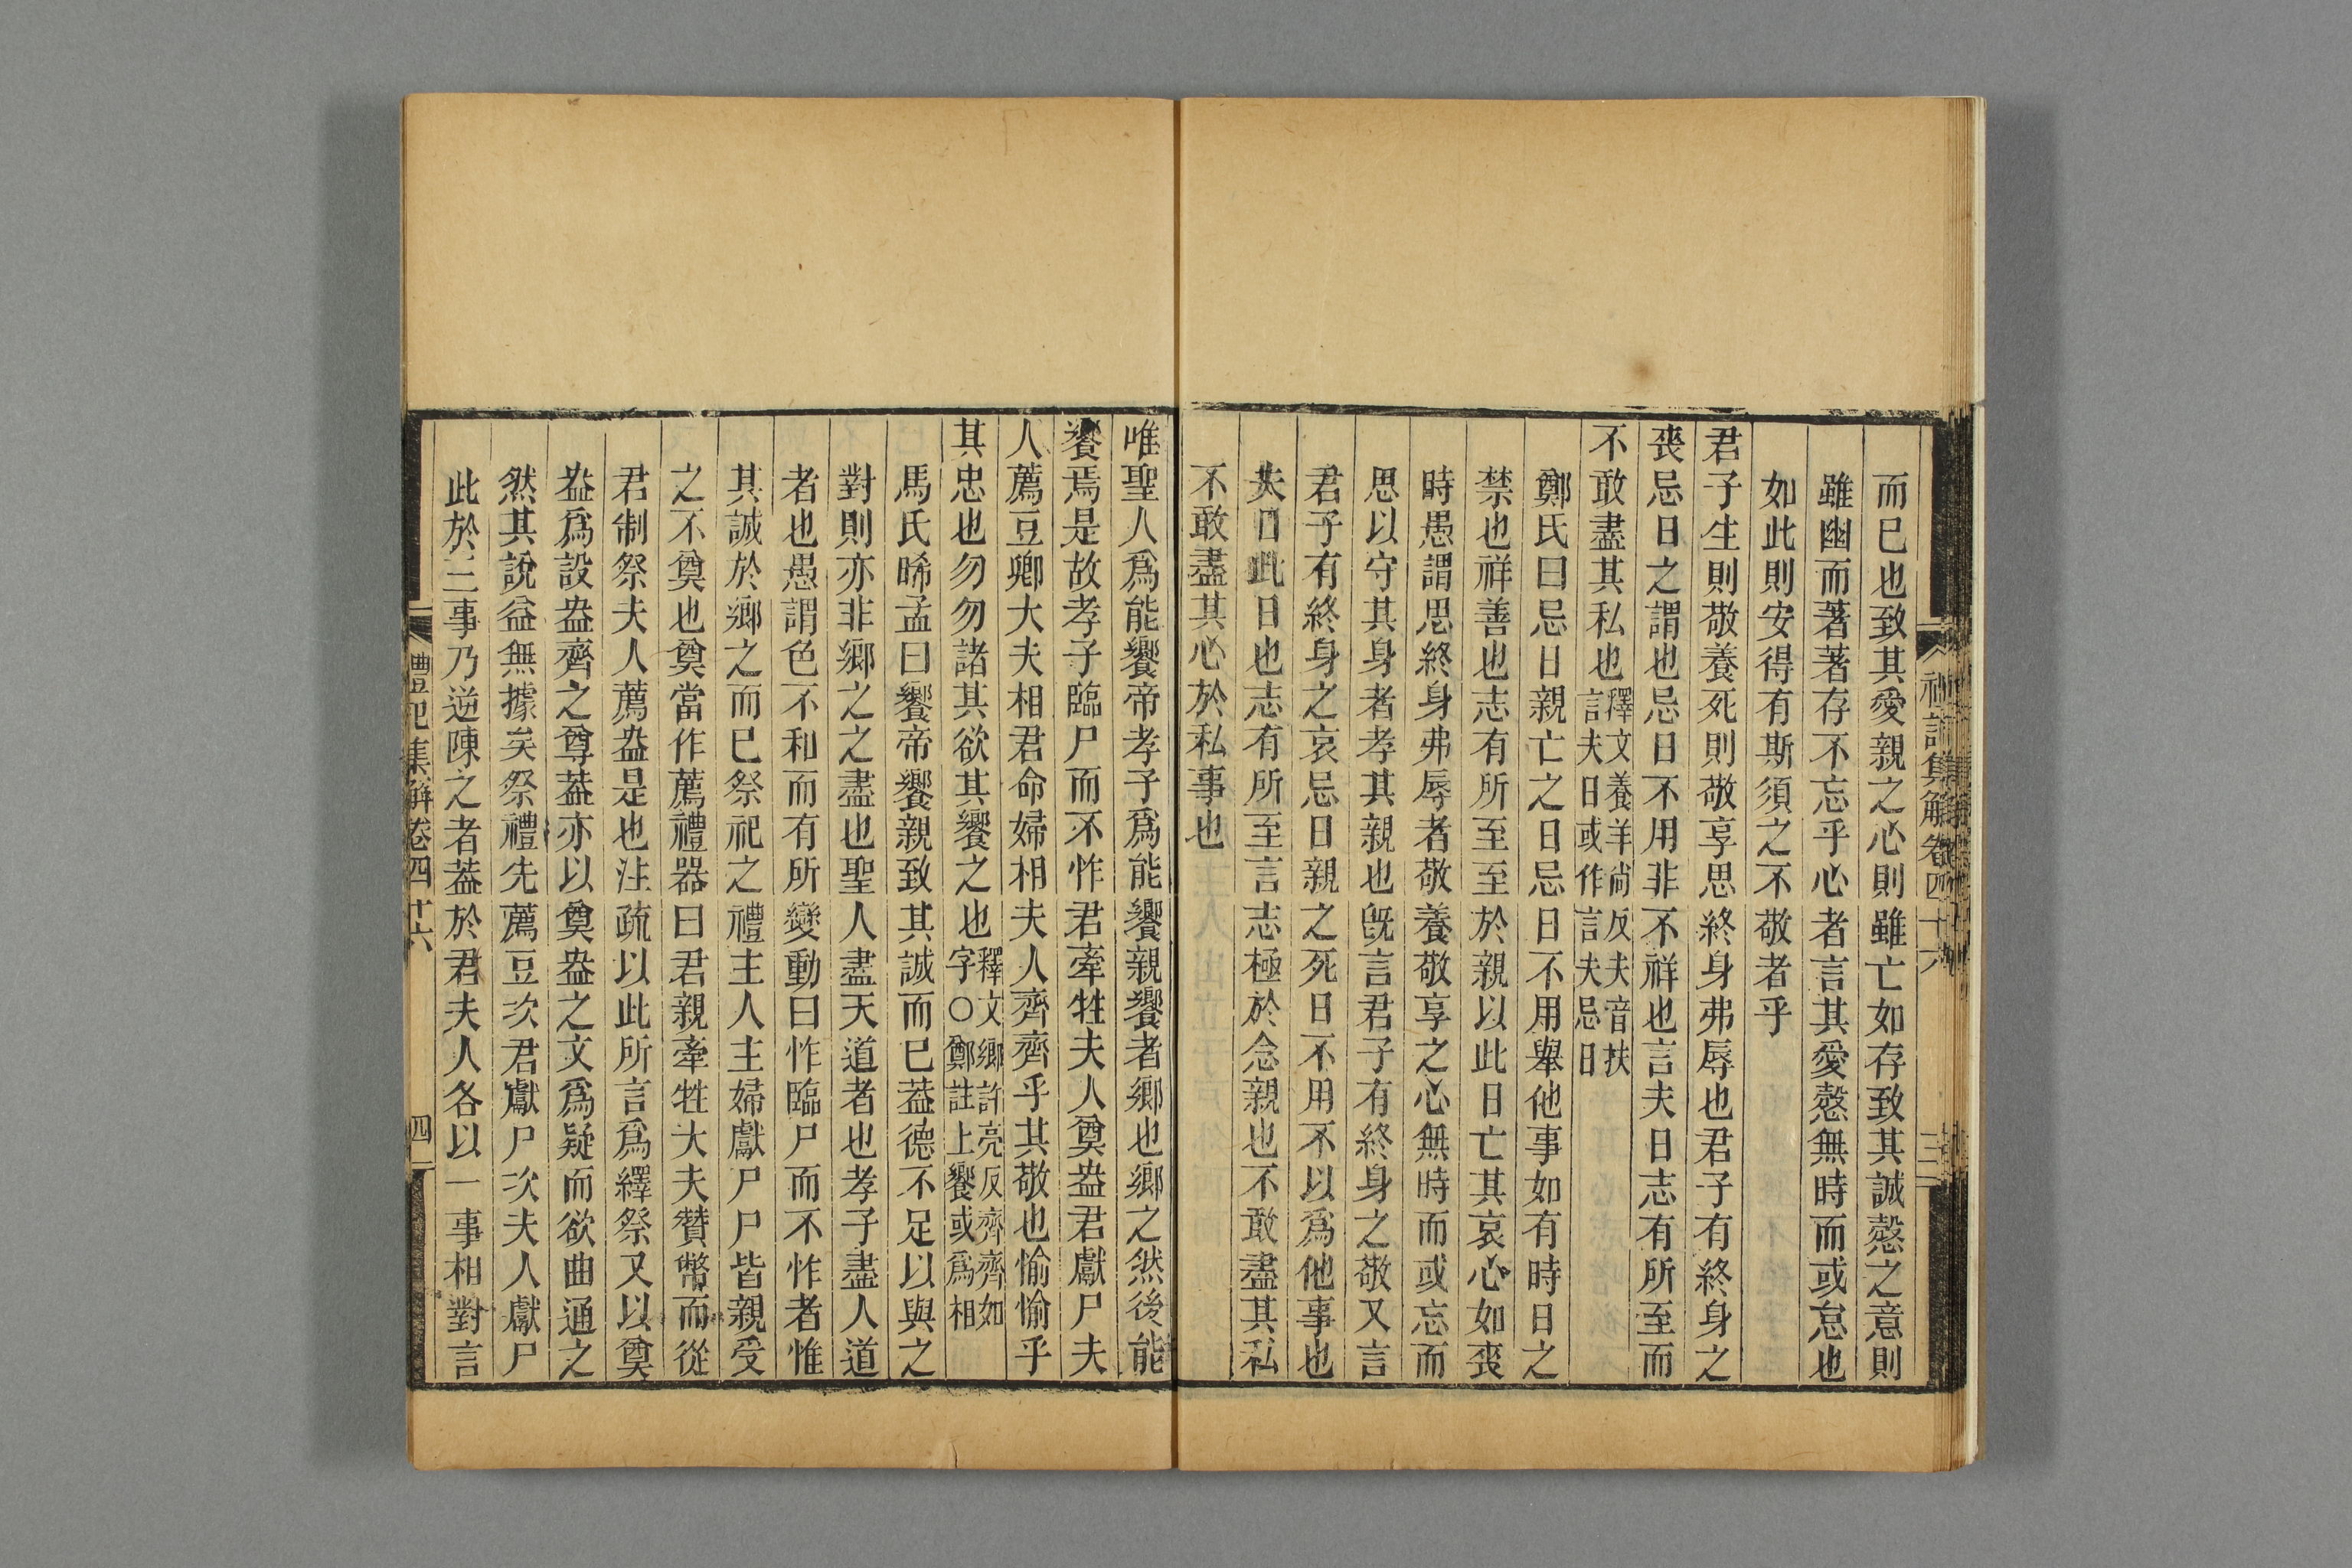 而已也致其愛親之心則雖亡如存致其誠慤之意則
雖幽而著著存不忘乎心者言其愛慤無時而或怠也
如此則安得有斯須之不敬者乎
君子生則敬養死則敬享思終身弗辱也君子有終身之
喪忌日之謂也忌日不用非不祥也言夫日志有所至而
不敢盡其私也釋文養羊尚反夫音扶言夫日或作言夫忌日
鄭氏曰忌日親亡之日忌日不用舉他事如有時日之
禁也祥善也志有所至至於親以此日亡其哀心如喪
時愚謂思終身弗辱者敬養敬享之心無時而或忘而
思以守其身者孝其親也旣言君子有終身之敬又言
君子有終身之哀忌日親之死日不用不以爲他事也
夫日此日也志有所至言志極於念親也不敢盡其私
不敢盡其心於私事也
唯聖人爲能饗帝孝子爲能饗親饗者鄉也鄉之然後能
饗焉是故孝子臨尸而不怍君牽牲夫人奠盎君獻尸夫
人薦豆卿大夫相君命婦相夫人齊齊乎其敬也愉愉乎
其忠也勿勿諸其欲其饗之也釋文鄉許亮反齊齊如字○鄭註上饗或爲相
馬氏晞孟曰饗帝饗親致其誠而已蓋德不足以與之
對則亦非鄉之之盡也聖人盡天道者也孝子盡人道
者也愚謂色不和而有所變動曰怍臨尸而不怍者惟
其誠於鄉之而已祭祀之禮主人主婦獻尸尸皆親受
之不奠也奠當作薦禮器曰君親牽牲大夫贊幣而從
君制祭夫人薦盎是也注疏以此所言爲繹祭又以奠
盎爲設盎齊之尊蓋亦以奠盎之文爲疑而欲曲通之
然其說益無據矣祭禮先薦豆次君獻尸次夫人獻尸
此於三事乃逆陳之者蓋於君夫人各以一事相對言
禮記集解卷四十六
四